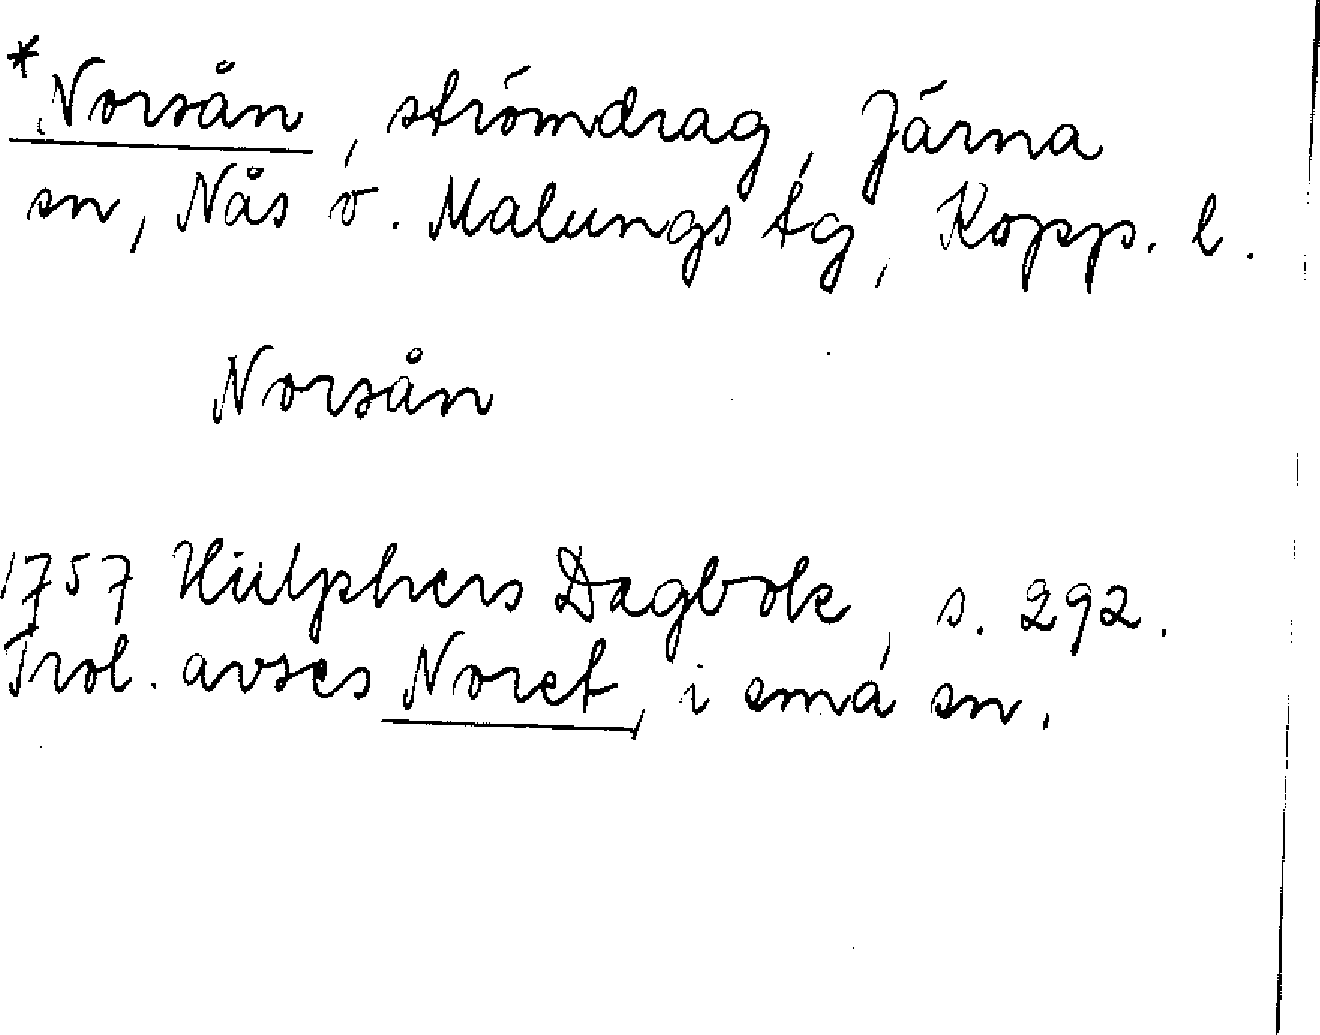 *Norsån, strömdrag, Järna
sn, Nås o. Malungs tg, Kopp. l.
Norsån
1757 Hülphers Dagbok, s. 292.
Trol. avses Noret, i smä sn.